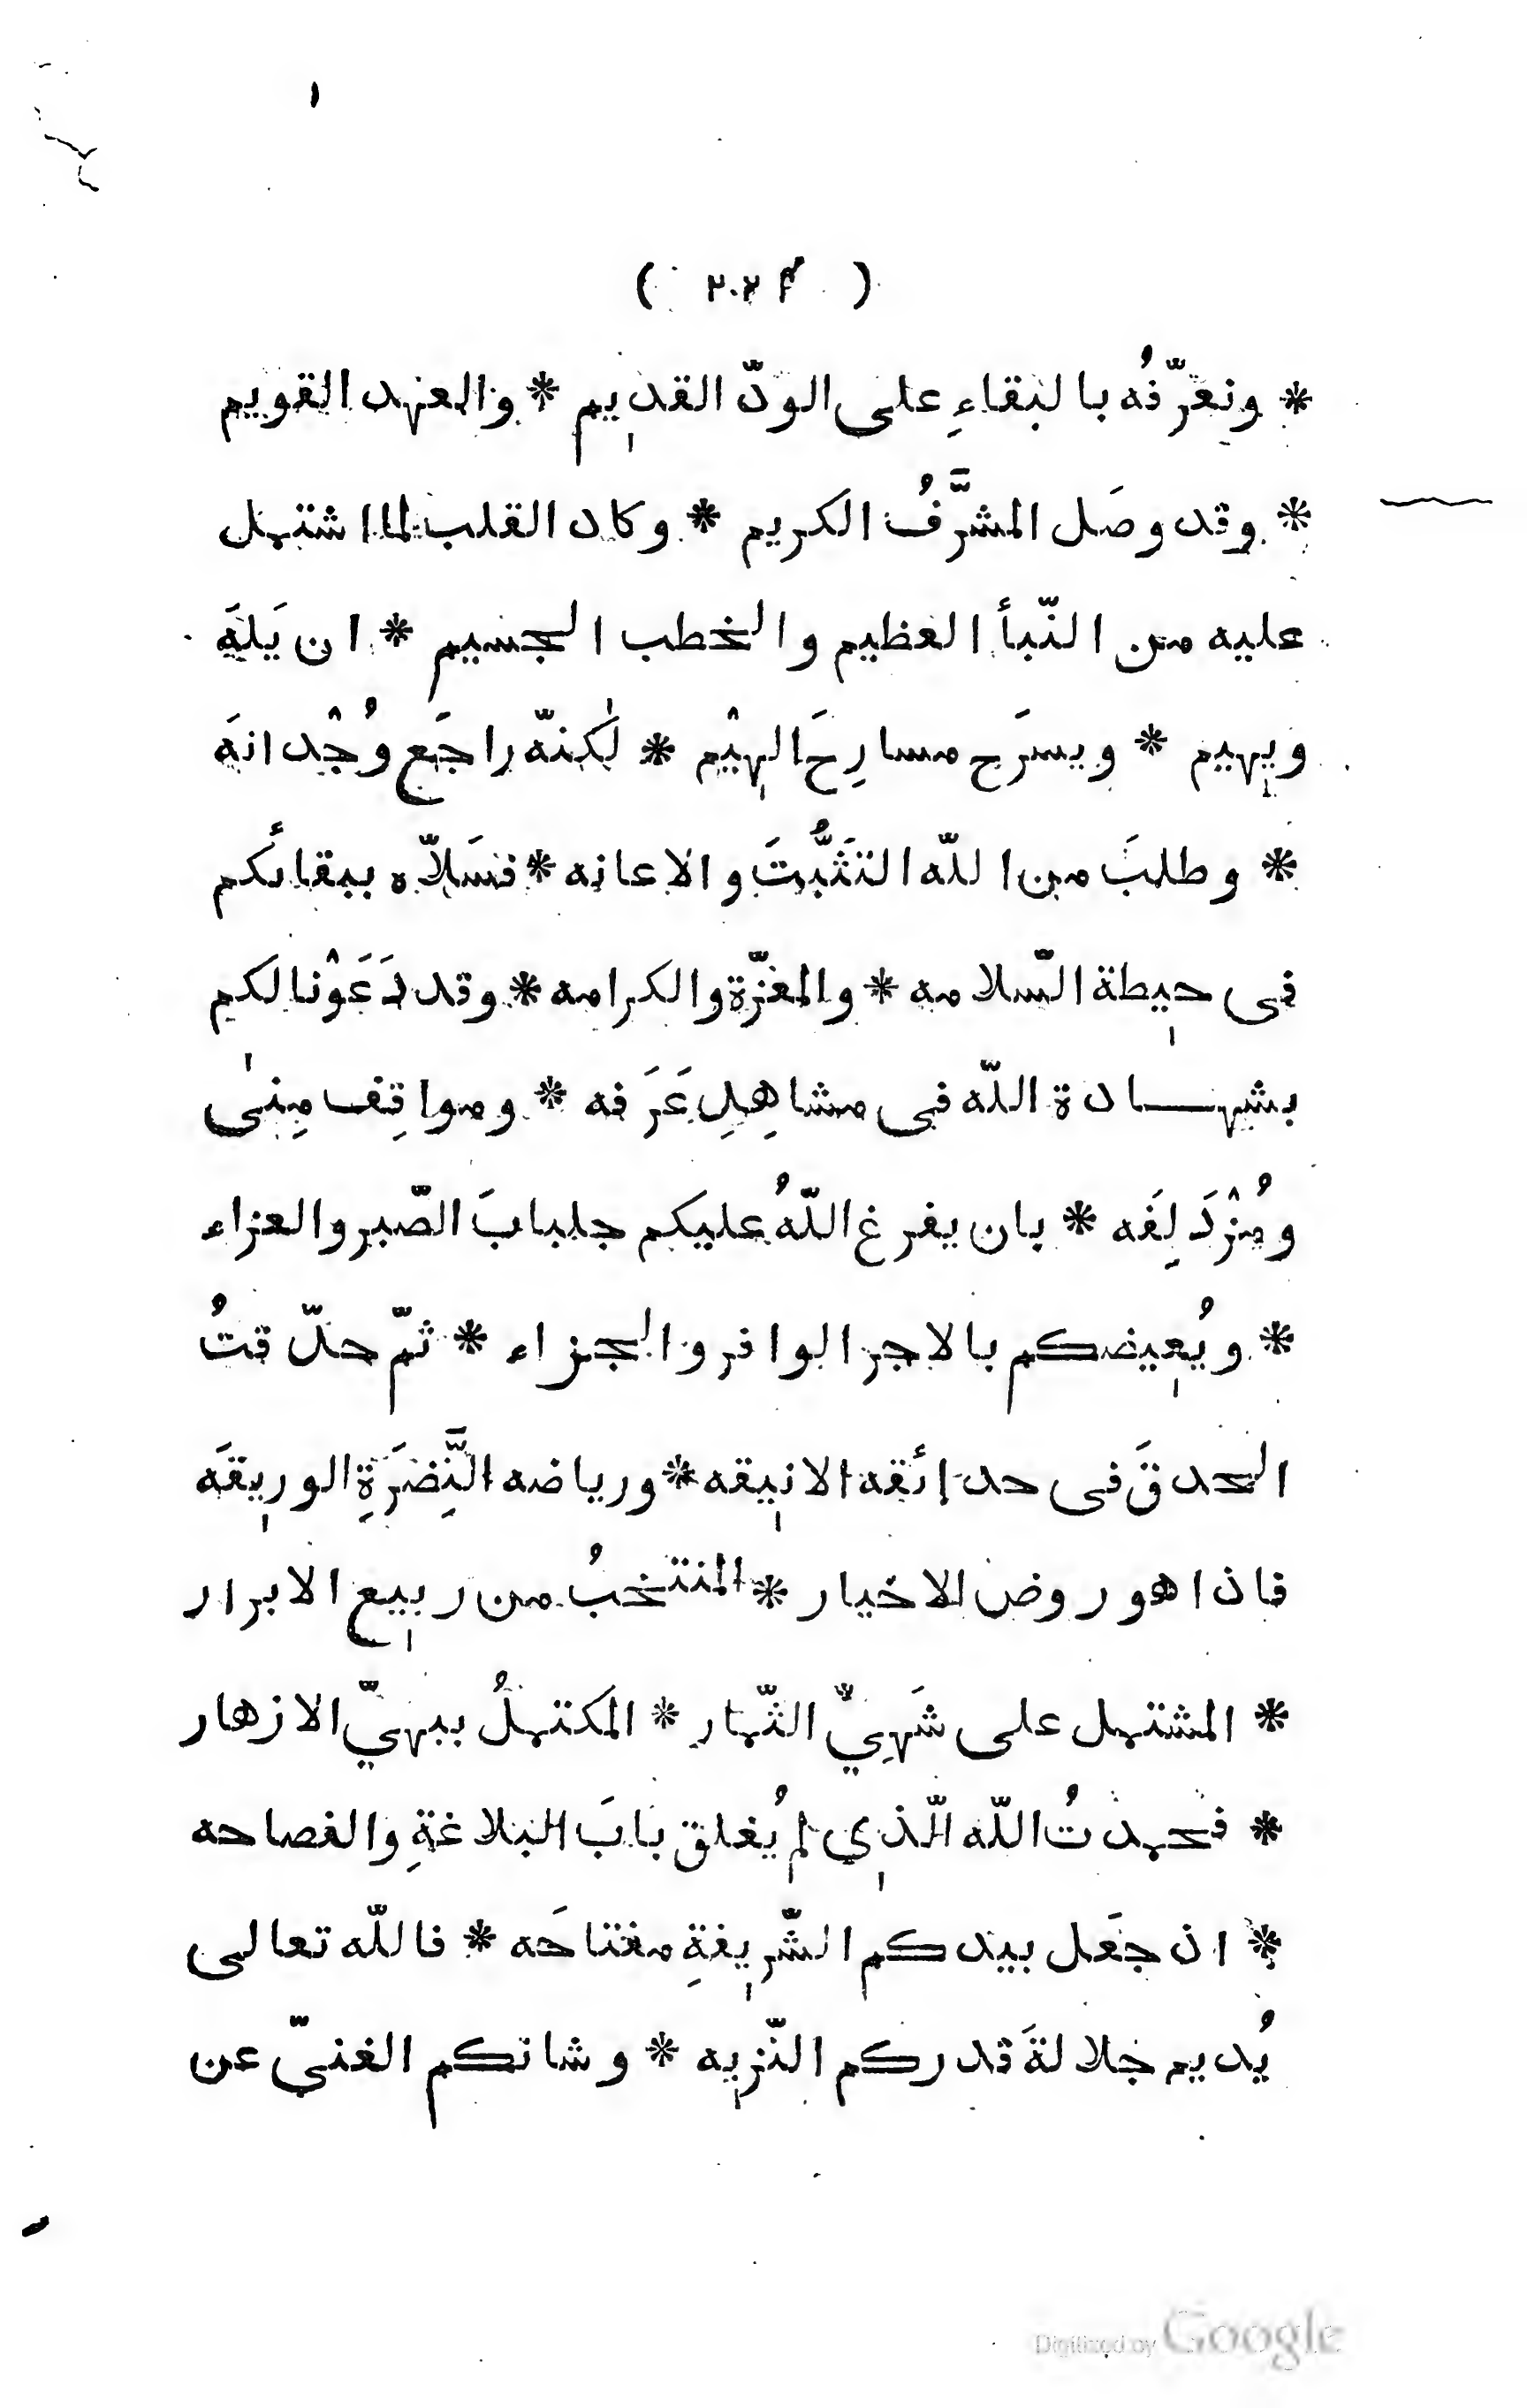 * ونعرّفُه بالبقاءِ على الودّ القديم * والعهد القويم
* وقد وصَل المشرَّفُ الكريم * وكان القلب لما اشتمل
عليه من النّبأ العظيم والخطب الجسيم * ان يَلهَ
ويهيم * ويسرَح مسارِحَ الهيْم * لٰكنّه راجَع وُجْدانهَ
* وطلبَ من اللّه التَثَبُّتَ والاعانه * فسَلاّه ببقائكم
فى حيطة السّلامه * والمعزّة والكرامه * وقد دَعَوْنا لكم
بشهادة اللّه فى مشاهِدِ عَرَفه * ومواقِف مِنىٰ
ومُزْدَلِفَه * بان يفرغ اللّهُ عليكم جلبابَ الصّبر والعزاء
* ويُعيضكم بالاجر الوافر والجزاء * ثمّ حدّقتُ
الحدقَ فى حدائقه الانيقه * ورياضه النَّضِرَةِ الوريقَه
فاذا هو روض الاخيار * المنتخبُ من ربيع الابرار
* المشتمل على شَهِيّ الثّمار * المكتملُ ببهيّ الازهار
* فحمدتُ اللّه الّذي لم يُغلق بابَ البلاغةِ والفصاحه
* ان جعَل بيدكم الشّريفةِ مفتاحَه * فاللّه تعالى
يُديم جلالةَ قدركم النّزيه * وشانكم الغنيّ عن
Digitized by Google